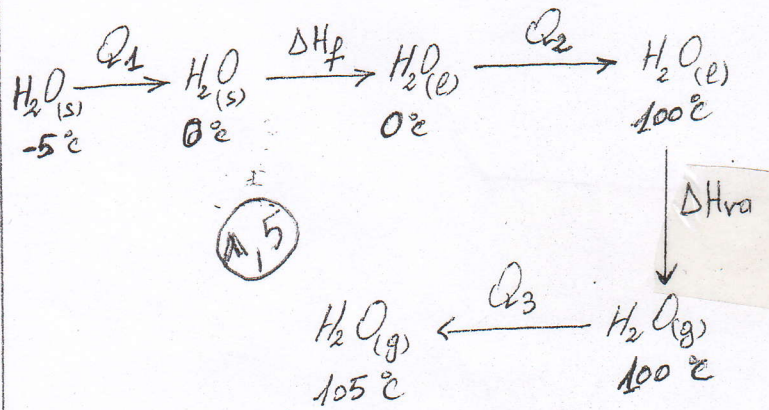 H₂O(s) Q₁ → H₂O(s) ΔHf → H₂O(l) Q₂ → H₂O(l)
-5°C 0°C 0°C 100°C
ΔHva
1,5
H₂O(g) ← Q₃ H₂O(g)
105°C 100°C